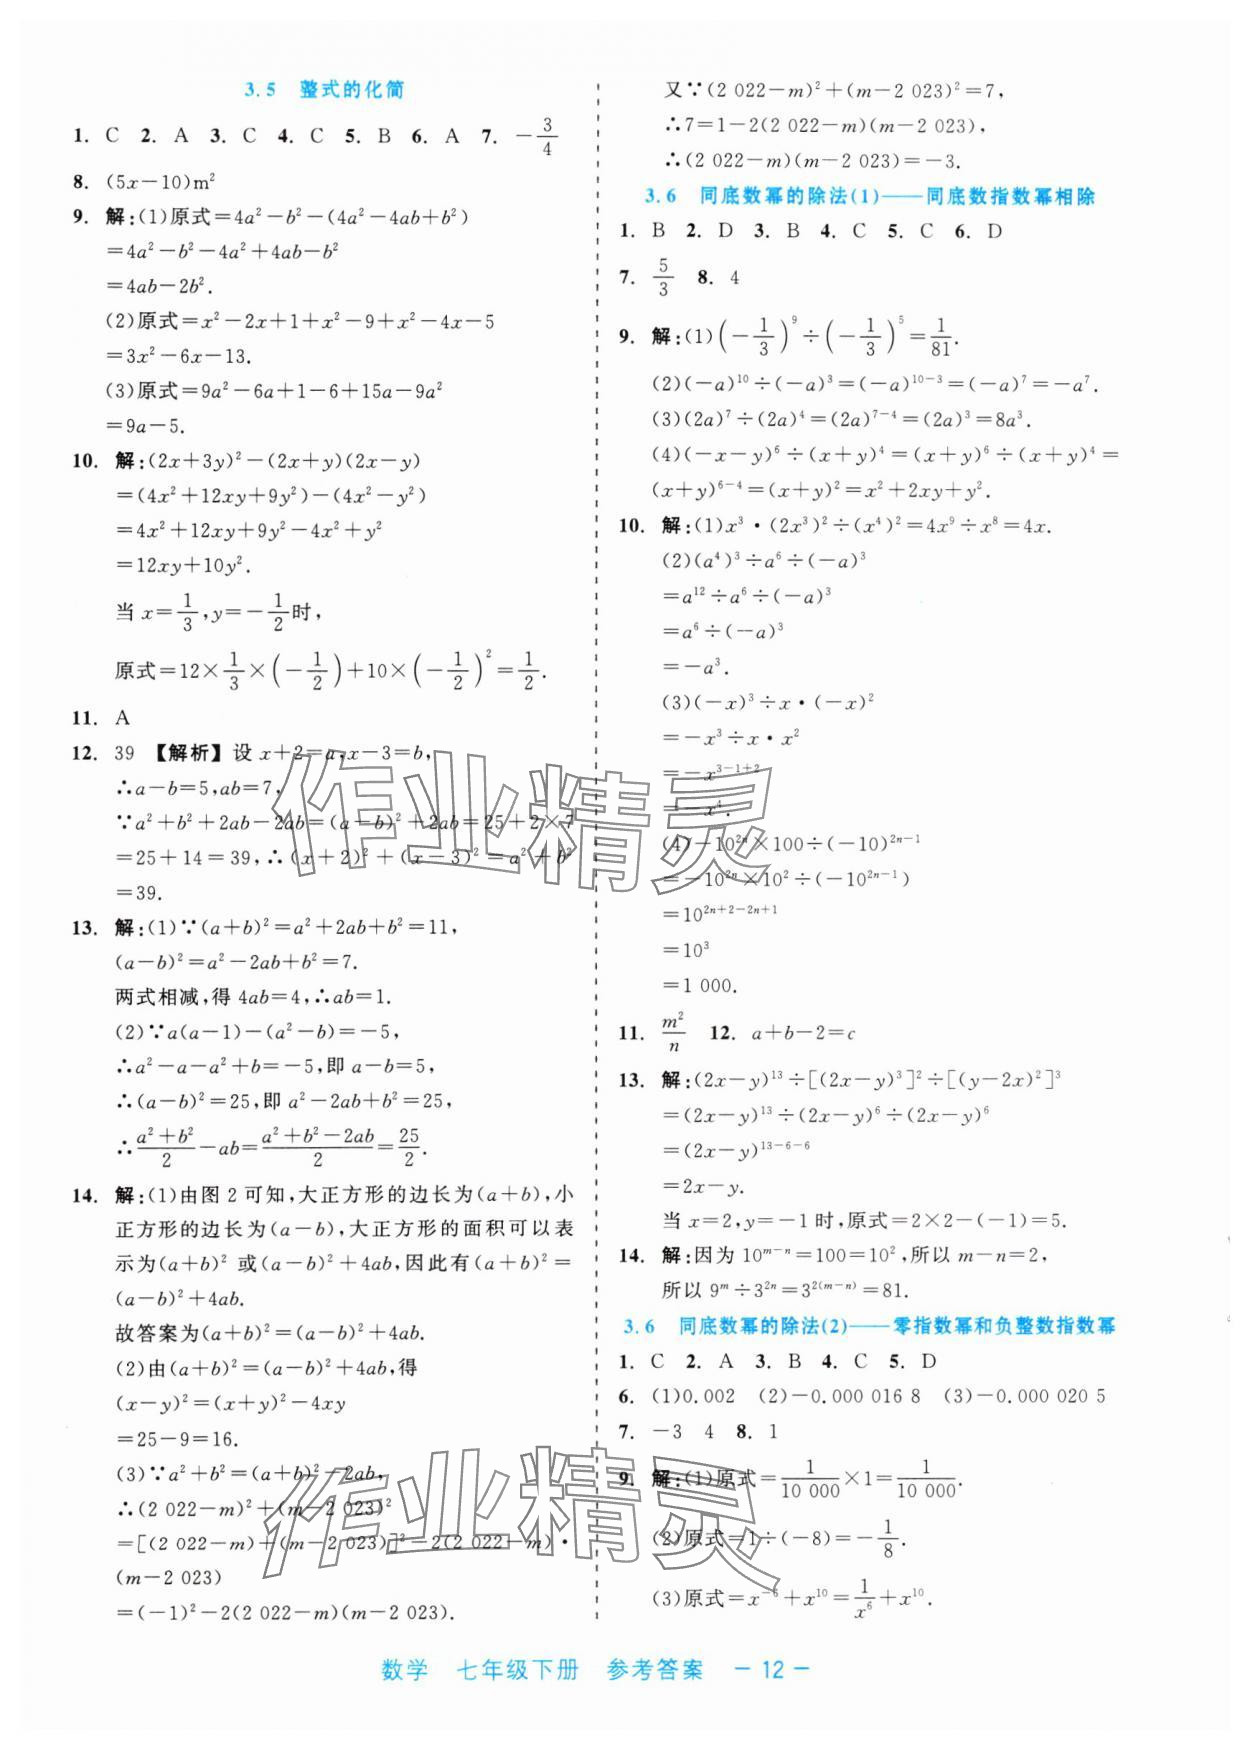 3.5 整式的化简
1. C 2. A 3. C 4. C 5. B 6. A 7. −3/4
8. (5x−10)m²
9. 解:(1)原式=4a²−b²−(4a²−4ab+b²)
=4a²−b²−4a²+4ab−b²
=4ab−2b².
(2)原式=x²−2x+1+x²−9+x²−4x−5
=3x²−6x−13.
(3)原式=9a²−6a+1−6+15a−9a²
=9a−5.
10. 解:(2x+3y)²−(2x+y)(2x−y)
=(4x²+12xy+9y²)−(4x²−y²)
=4x²+12xy+9y²−4x²+y²
=12xy+10y².
当 x=1/3,y=−1/2时,
原式=12×1/3×(−1/2)+10×(−1/2)²=1/2.
11. A
12. 39 【解析】设 x+2=a,x−3=b,
∴a−b=5,ab=7,
∵a²+b²+2ab−2ab=(a−b)²+2ab=25+2×7
=25+14=39,∴(x+2)²+(x−3)²=a²+b²
=39.
13. 解:(1)∵(a+b)²=a²+2ab+b²=11,
(a−b)²=a²−2ab+b²=7.
两式相减,得 4ab=4,∴ab=1.
(2)∵a(a−1)−(a²−b)=−5,
∴a²−a−a²+b=−5,即 a−b=5,
∴(a−b)²=25,即 a²−2ab+b²=25,
∴(a²+b²)/2−ab=(a²+b²−2ab)/2=25/2.
14. 解:(1)由图 2 可知,大正方形的边长为(a+b),小
正方形的边长为(a−b),大正方形的面积可以表
示为(a+b)² 或(a−b)²+4ab,因此有(a+b)²=
(a−b)²+4ab.
故答案为(a+b)²=(a−b)²+4ab.
(2)由(a+b)²=(a−b)²+4ab,得
(x−y)²=(x+y)²−4xy
=25−9=16.
(3)∵a²+b²=(a+b)²−2ab,
∴(2 022−m)²+(m−2 023)²
=[(2 022−m)+(m−2 023)]²−2(2 022−m)·
(m−2 023)
=(−1)²−2(2 022−m)(m−2 023).
又∵(2 022−m)²+(m−2 023)²=7,
∴7=1−2(2 022−m)(m−2 023),
∴(2 022−m)(m−2 023)=−3.
3.6 同底数幂的除法(1)——同底数指数幂相除
1. B 2. D 3. B 4. C 5. C 6. D
7. 5/3 8. 4
9. 解:(1)(−1/3)⁹÷(−1/3)⁵=1/81.
(2)(−a)¹⁰÷(−a)³=(−a)¹⁰⁻³=(−a)⁷=−a⁷.
(3)(2a)⁷÷(2a)⁴=(2a)⁷⁻⁴=(2a)³=8a³.
(4)(−x−y)⁶÷(x+y)⁴=(x+y)⁶÷(x+y)⁴=
(x+y)⁶⁻⁴=(x+y)²=x²+2xy+y².
10. 解:(1)x³·(2x³)²÷(x⁴)²=4x⁹÷x⁸=4x.
(2)(a⁴)³÷a⁶÷(−a)³
=a¹²÷a⁶÷(−a)³
=a⁶÷(−a)³
=−a³.
(3)(−x)³÷x·(−x)²
=−x³÷x·x²
=−x³⁻¹⁺²
=−x⁴.
(4)−10²ⁿ×100÷(−10)²ⁿ⁻¹
=−10²ⁿ×10²÷(−10²ⁿ⁻¹)
=10²ⁿ⁺²⁻²ⁿ⁺¹
=10³
=1 000.
11. m²/n 12. a+b−2=c
13. 解:(2x−y)¹³÷[(2x−y)³]²÷[(y−2x)²]³
=(2x−y)¹³÷(2x−y)⁶÷(2x−y)⁶
=(2x−y)¹³⁻⁶⁻⁶
=2x−y.
当 x=2,y=−1 时,原式=2×2−(−1)=5.
14. 解:因为 10ᵐ⁻ⁿ=100=10²,所以 m−n=2,
所以 9ᵐ÷3²ⁿ=3²⁽ᵐ⁻ⁿ⁾=81.
3.6 同底数幂的除法(2)——零指数幂和负整数指数幂
1. C 2. A 3. B 4. C 5. D
6. (1)0.002 (2)−0.000 016 8 (3)−0.000 020 5
7. −3 4 8. 1
9. 解:(1)原式=1/10 000×1=1/10 000.
(2)原式=1÷(−8)=−1/8.
(3)原式=x⁻⁶+x¹⁰=1/x⁶+x¹⁰.
数学 七年级下册 参考答案 −12−
作业精灵
作业精灵